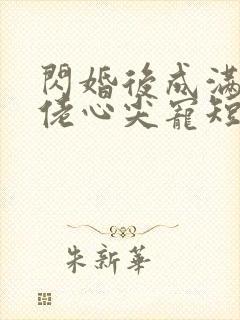 閃婚後成滿
佬心尖寵短
朱新華